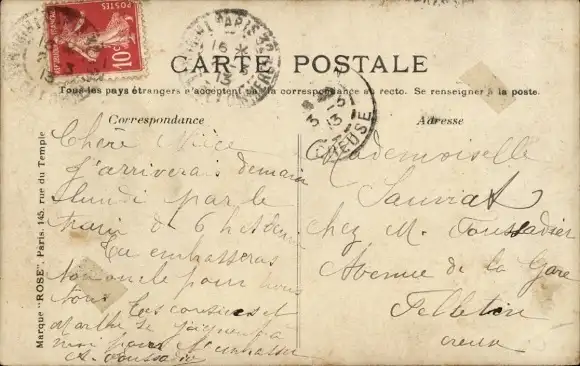 POSTES
10c
PARIS
16 *
3
13
CARTE POSTALE
Tous les pays étrangers n'acceptent pas la correspondance au recto. Se renseigner à la poste.
Correspondance
Chère Nièce
J'arriverais demain
Lundi par le
train de 6 h et demi
Tu embrasseras
ton oncle pour nous
tous Tes cousines et
Marthe se joignent à
moi pour t'embrasser
A. Toussadier
Adresse
Mademoiselle
Sauvrat
chez M. Toussadier
Avenue de la Gare
Felletin
Creuse
CREUSE
Marque "ROSE", Paris, 145, rue du Temple